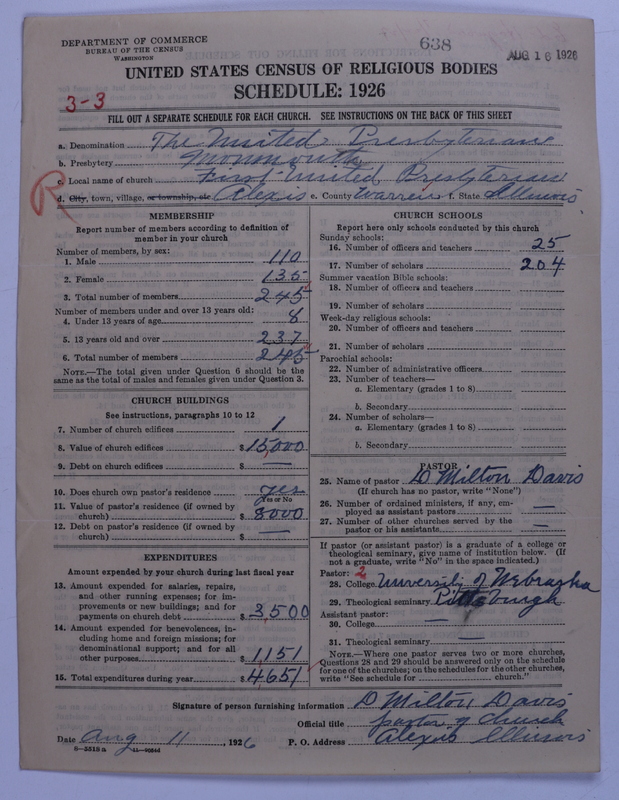 DEPARTMENT OF COMMERCE
BUREAU OF THE CENSUS
WASHINGTON
638
AUG 16 1926
UNITED STATES CENSUS OF RELIGIOUS BODIES
SCHEDULE: 1926
3-3
FILL OUT A SEPARATE SCHEDULE FOR EACH CHURCH. SEE INSTRUCTIONS ON THE BACK OF THIS SHEET
a. Denomination The United Presbyterian
b. Presbytery Monmouth
c. Local name of church First United Presbyterian
R
d. City, town, village, or township, etc Alexis e. County Warren f. State Illinois
MEMBERSHIP
Report number of members according to definition of
member in your church
Number of members, by sex:
1. Male 110
2. Female 135
3. Total number of members 245
Number of members under and over 13 years old:
4. Under 13 years of age 8
5. 13 years old and over 237
6. Total number of members 245
NOTE.—The total given under Question 6 should be the
same as the total of males and females given under Question 3.
CHURCH BUILDINGS
See instructions, paragraphs 10 to 12
7. Number of church edifices 1
8. Value of church edifices $15,000
9. Debt on church edifices $ —
10. Does church own pastor's residence yes
Yes or No
11. Value of pastor's residence (if owned by
church) $8000
12. Debt on pastor's residence (if owned by
church) $ —
EXPENDITURES
Amount expended by your church during last fiscal year
13. Amount expended for salaries, repairs,
and other running expenses; for im-
provements or new buildings; and for
payments on church debt $3,500
14. Amount expended for benevolences, in-
cluding home and foreign missions; for
denominational support; and for all
other purposes $1151
15. Total expenditures during year $4,651
CHURCH SCHOOLS
Report here only schools conducted by this church
Sunday schools:
16. Number of officers and teachers 25
17. Number of scholars 204
Summer vacation Bible schools:
18. Number of officers and teachers
19. Number of scholars
Week-day religious schools:
20. Number of officers and teachers
21. Number of scholars
Parochial schools:
22. Number of administrative officers
23. Number of teachers—
a. Elementary (grades 1 to 8)
b. Secondary
24. Number of scholars—
a. Elementary (grades 1 to 8)
b. Secondary
PASTOR
25. Name of pastor D Milton Davis
(If church has no pastor, write "None")
26. Number of ordained ministers, if any, em-
ployed as assistant pastors —
27. Number of other churches served by the
pastor or his assistants —
If pastor (or assistant pastor) is a graduate of a college or
theological seminary, give name of institution below. (If
not a graduate, write "No" in the space indicated.)
Pastor: 2
28. College University of Nebraska
29. Theological seminary Pittsburgh
Assistant pastor:
30. College —
31. Theological seminary —
NOTE.—Where one pastor serves two or more churches,
Questions 28 and 29 should be answered only on the schedule
for one of the churches; on the schedules for the other churches,
write "See schedule for church."
Signature of person furnishing information D Milton Davis
Official title pastor of church
Date Aug 11, 1926 P. O. Address Alexis Illinois
8-5518a